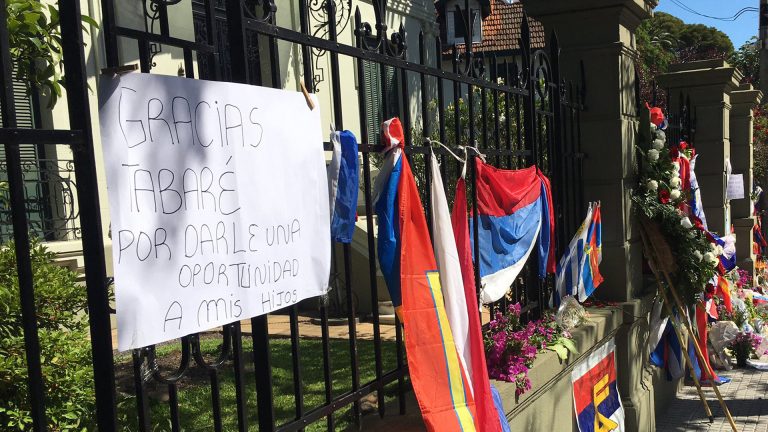 GRACIAS
TABARÉ
POR DARLE UNA
OPORTUNIDAD
A MIS HIJOS